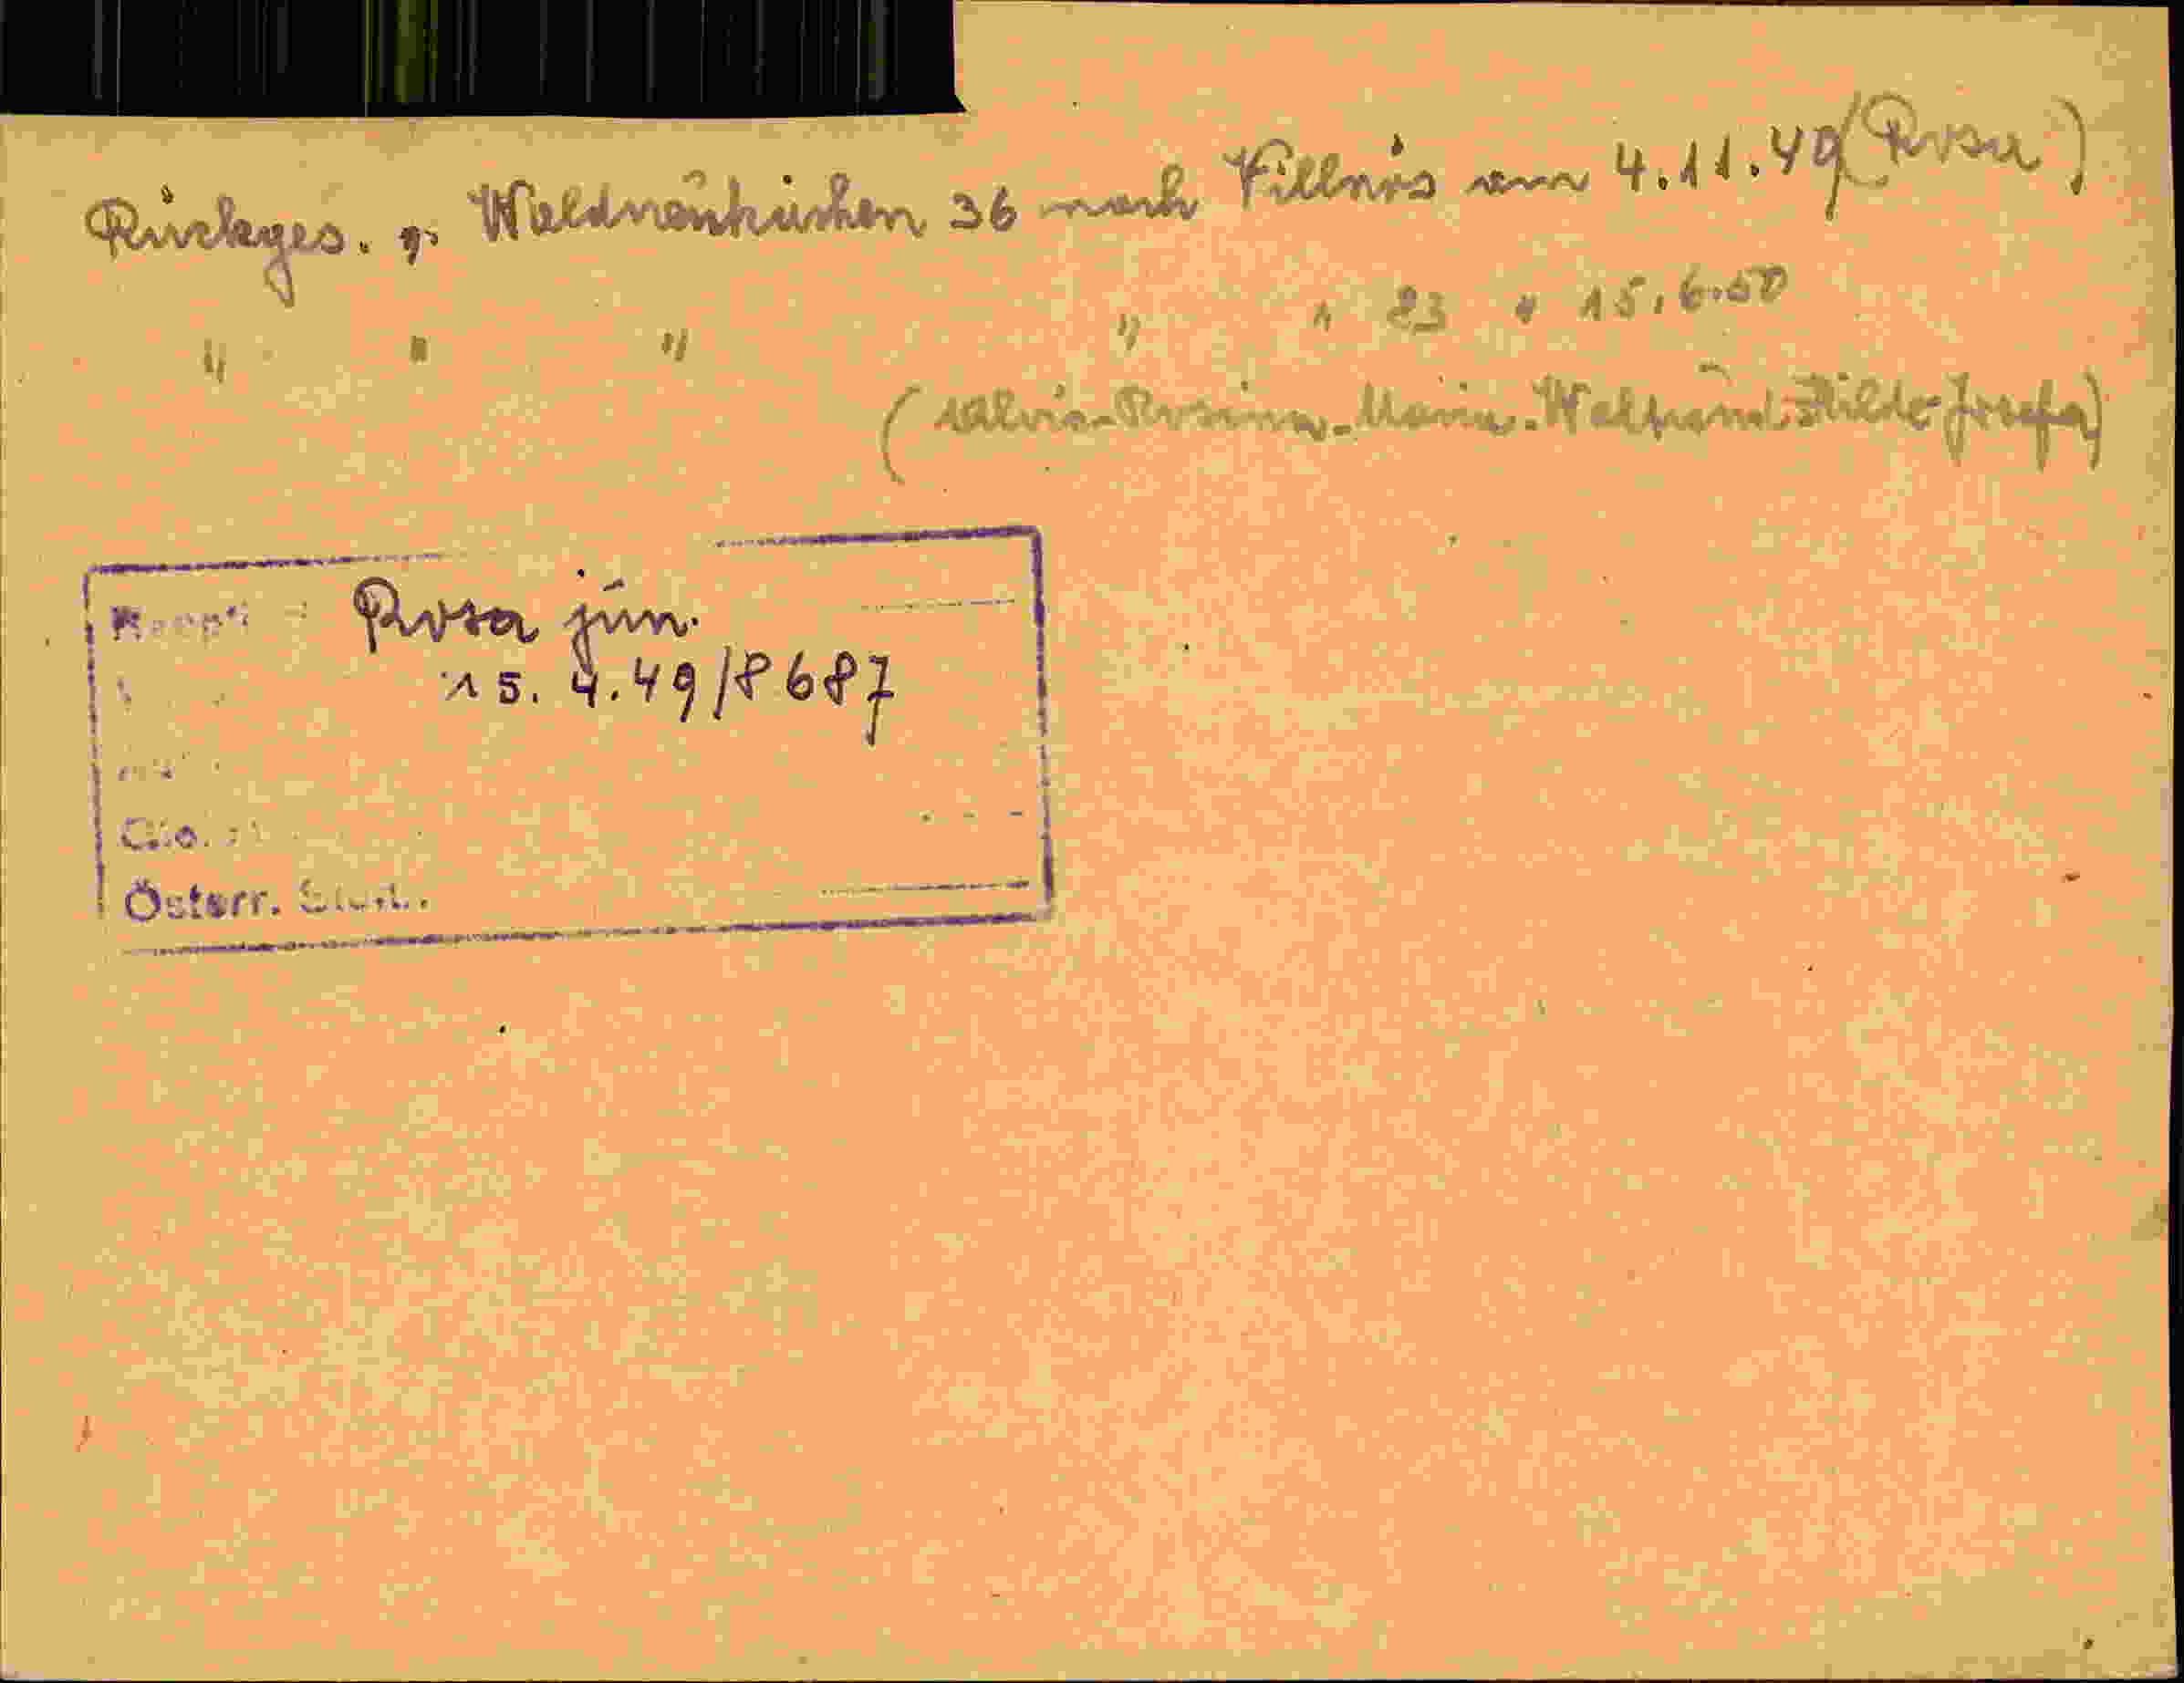 Rückges. v. Waldneukirchen 36 nach Villnös am 4.11.49 (Rosa)
" " " " " 23 " 15.6.50
(Alois-Rosina-Maria-Waltraud-Hilde-Josefa)
Rosa jun.
15. 4. 49/8687
Österr.